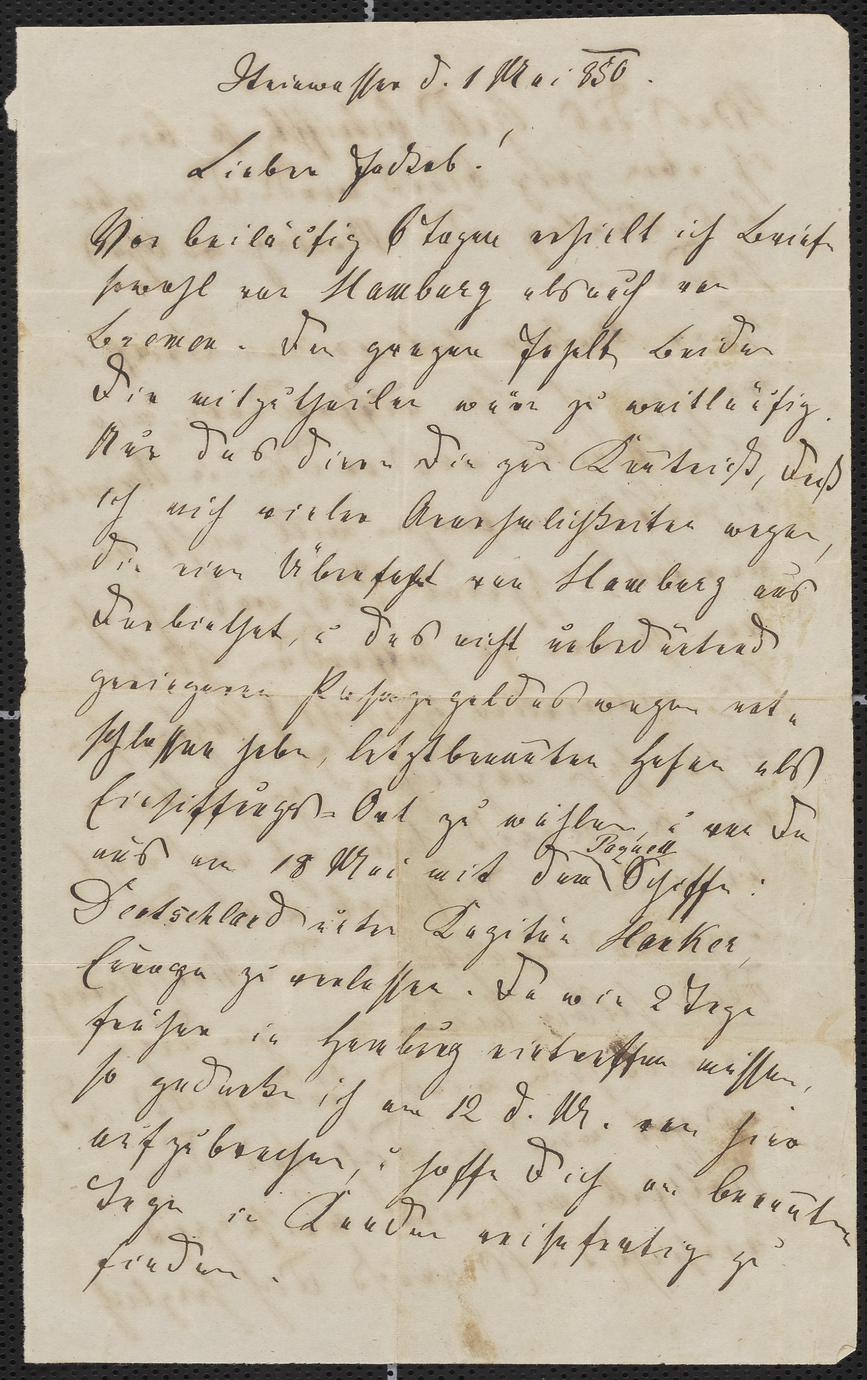 Steinwasser d. 1 Mai 850.
Lieber Jackob!
Vor beiläufig 6 Tagen erhielt ich Briefe
sowohl von Hamburg als auch von
Bremen. Den ganzen Inhalt Beider
Dir mitzutheilen wäre zu weitläufig.
Nur das diene Dir zur Kenntniß, daß
ich mich vieler Annehmlichkeiten wegen,
die eine Überfahrt von Hamburg aus
darbiethet, u das nicht unbedeutend
geringeren Passagegeldes wegen ent-
schlossen habe, letztbenannten Hafen als
Einschiffungs-Ort zu wählen, u von da
aus am 18 Mai mit dem Schiffe:
Deutschland unter Kapitän
Europa zu verlassen. Da wir 2 Tage
früher in Hamburg eintreffen müssen,
so gedenke ich am 12 d. M. von hier
aufzubrechen, u hoffe Dich am benannten
Tage in Kaaden reisefertig zu
finden.